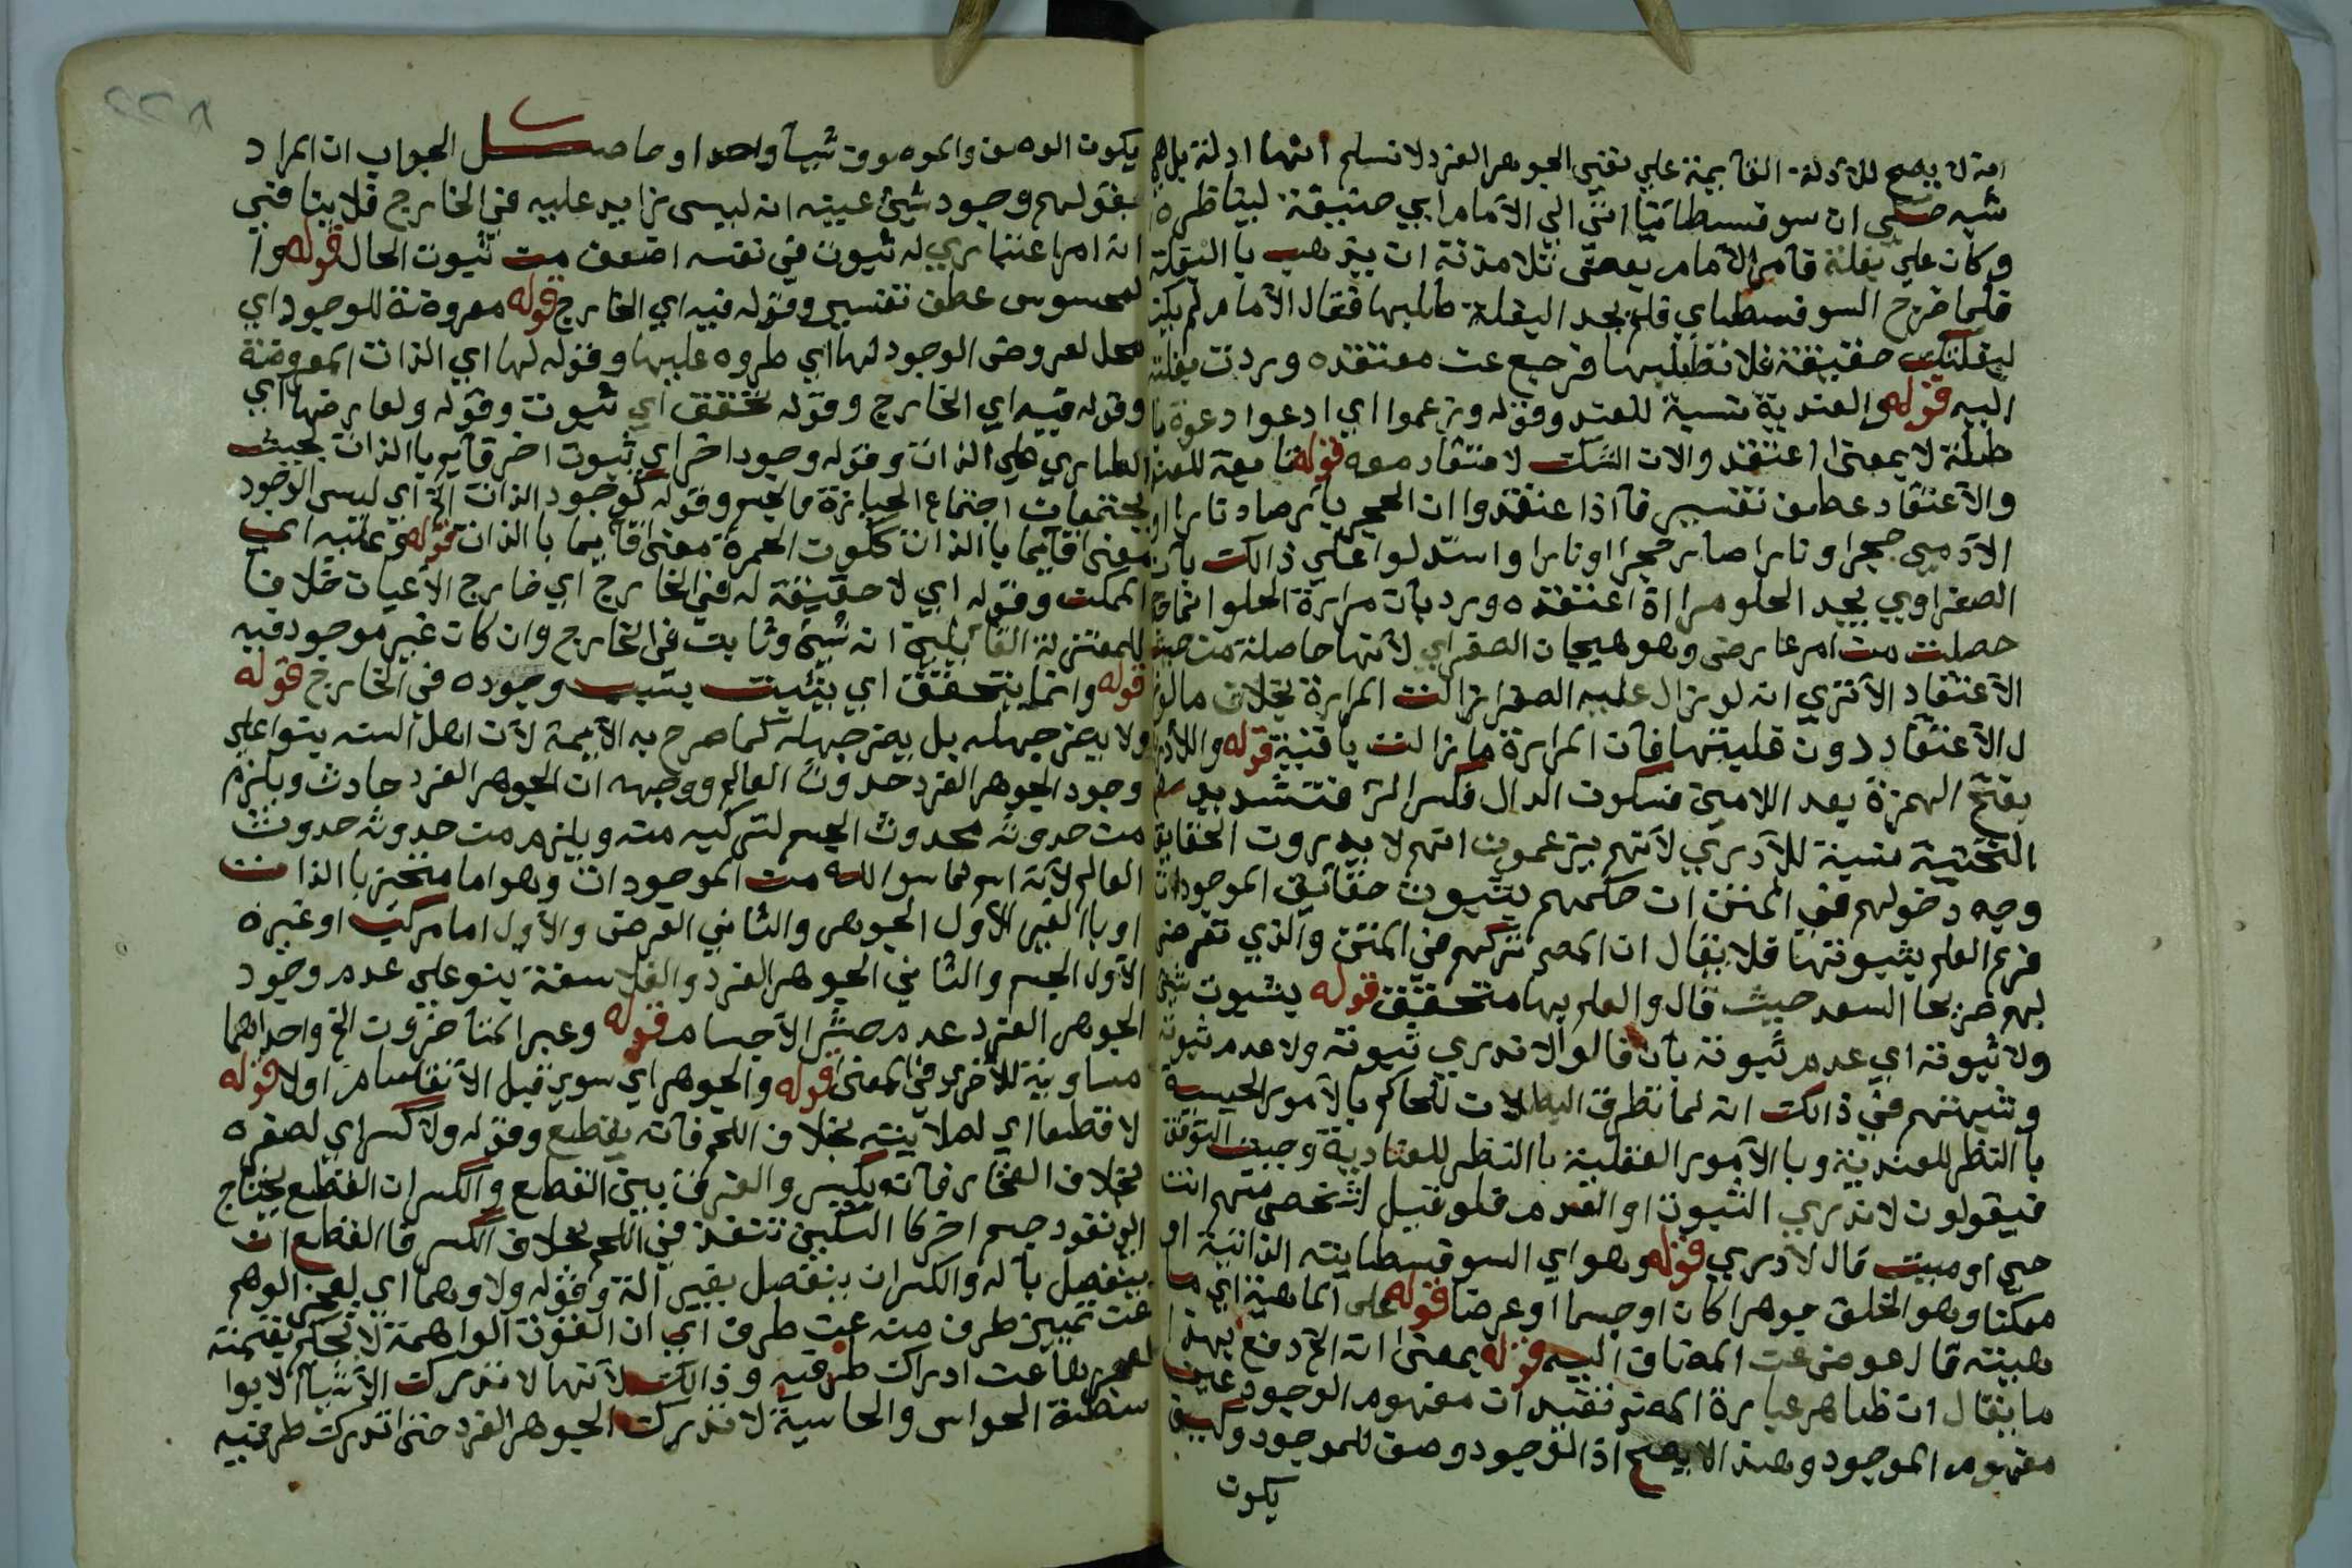 انه لا يصح للأدلة القائمة علي نفي الجوهر الفرد لا نسلم أنها ادلة بل هي
شبه حكي ان سوفسطائيا اتي الي الأمام ابي حنيفة ليناظره
وكان علي بغلة فأمر الأمام بعض تلامذته ان يذهب بالبغلة
فلما خرج السوفسطاي فلم يجد البغلة طلبها فقال الأمام لم يكن
لبغلتك حقيقة فلا تطلبها فرجع عن معتقده وردت بغلته
اليه قوله والعندية نسبة للعند وقوله وزعموا اي ادعوا دعوة با
طلة لا بمعنى اعتقد والان الشك لا اعتقاد معه قوله تابعة للعند
والأعتقاد عطف تفسير فآذا اعتقدوا ان الحجر يآ صار نارا او
الآدمي حجرا ونارا صار حجرا او نارا واستدلوا علي ذالك بآن
الصفراوي يجد الحلو مرا اذا اعتقده ورد بآن مرارة الحلو انما
حصلت من امر عارض وهو هيجان الصفراي لآنها حاصلة من حيث
الآعتقاد الآ تري انه لو زال عليه الصفرا زالت المرارة بخلاف مالو ز
ل الآعتقاد دون غلبتها فآن المرارة ما زالت باقية قوله واللأدرية
بفتح الهمزة بعد اللامين فسكون الدال فكسر الر فتشديد
التحتية نسبة للأدري لآنهم يزعمون انهم لا يدرون الحقايق
وجه دخولهم في المتن ان حكمهم بثبوت حقائق الموجودات
فرع العلم بثبوتها فلا يقال ان المص تركهم في المتن والذي تعرض
لهم صريحا السعد حيث قال والعلم بها متحقق قوله بثبوت شئ
ولا ثبوته اي عدم ثبوته بأن قالوا لا ندري ثبوته ولا عدم ثبوته
وشبهتهم في ذالك انه لما تطرق البطلان للحاكم بالآمور الحسية
با النظر للعندية وبا الأمور العقلية با النظر للعنادية وجب التوقف
فيقولون لا ندري الثبوت او العدم فلو قيل لشخص منهم انت
حي او ميت قال لا ادري قوله وهو اي السوفسطايته الذاتية او
ممكنا وهو الخلق جوهرا كان او جسما او عرضا قوله علي الماهية اي ما
هيته فال عوض عن المضاف اليه قوله بمعنى انه الخ دفع بهذا
ما يقال ان ظاهر عبارة المص تفيد ان مفهوم الوجود عين
مفهوم الموجود وهذ الا يصح اذ الوجود وصف للموجود وكيف
يكون
يكون الوصف والموصوف شيآ واحدا وحاصل الجواب ان المراد
بقولهم وجود شئ عينه انه ليس زايد عليه في الخارج فلا ينافي
انه امر اعتباري له ثبوت في نفسه اضعف من ثبوت الحال قوله وا
لمحسوس عطف تفسير وقوله فيه اي الخارج قوله معروضة للوجود اي
محل لعروض الوجود لها اي طروه عليها وقوله لها اي الذات المعروضة
وقوله فيه اي الخارج وقوله تحقق اي ثبوت وقوله ولعارضها اي
الطاري علي الذات وقوله وجود اخر اي ثبوت اخر قآيم با الذات بحيث
يجتمعان اجتماع الحمرة والجسم وقوله كوجود الذات الخ اي ليس الوجود
معنى قآيما با الذات ككون الحمرة معنى قآيما با الذات قوله وعليه اي
الممكن وقوله اي لا حقيقة له في الخارج اي خارج الأعيان خلافا
للمعتزلة القآيلين انه شئ وثابت في الخارج وان كان غير موجود فيه
قوله وانما يتحقق اي يثبت بسبب وجوده في الخارج قوله
ولا يضر جهله بل يضر جهله كما صرح به الآيمة لآن اهل السنه بنوا علي
وجود الجوهر الفرد حدوث العالم ووجهه ان الجوهر الفرد حادث ويلزم
من حدوثه حدوث الجسم لتركبه منه ويلزم من حدوثه حدوث
العالم لآنه اسم لما سوا الله من الموجودات وهو اما متحيز با الذات
او با الغير الأول الجوهر والثاني العرض والأول اما مركب او غيره
الآول الجسم والثاني الجوهر الفرد والفلاسفة بنو علي عدم وجود
الجوهر الفرد عدم حشر الأجسام قوله وعبر المتأخرون الخ واحداهما
مساوية للآخرى في المعنى قوله والجوهر اي سوي قبل الآنقسام اولا قوله
لا قطعا اي لصلابته بخلاف اللحم فآنه يقطع وقوله ولا كسرا اي لصغره
بخلاف الفخار فآنه يكسر والفرق بين القطع والكسر ان القطع يحتاج
الي نفود جسم اخر كا السكين تنفذ في اللحم بخلاف الكسر فا القطع ان
ينفصل بآله والكسر ان ينفصل بغير آلة وقوله ولا وهما اي لعجز الوهم
عن تمييز طرف منه عن طرف اي ان القوة الواهمة لا تحكم بقسمته
لعجزها عن ادراك طرفيه وذالك لآنها لا تدرك الأشيآ الا بوا
سطة الحواس والحاسية لا تدرك الجوهر الفرد حتى تدرك طرفيه